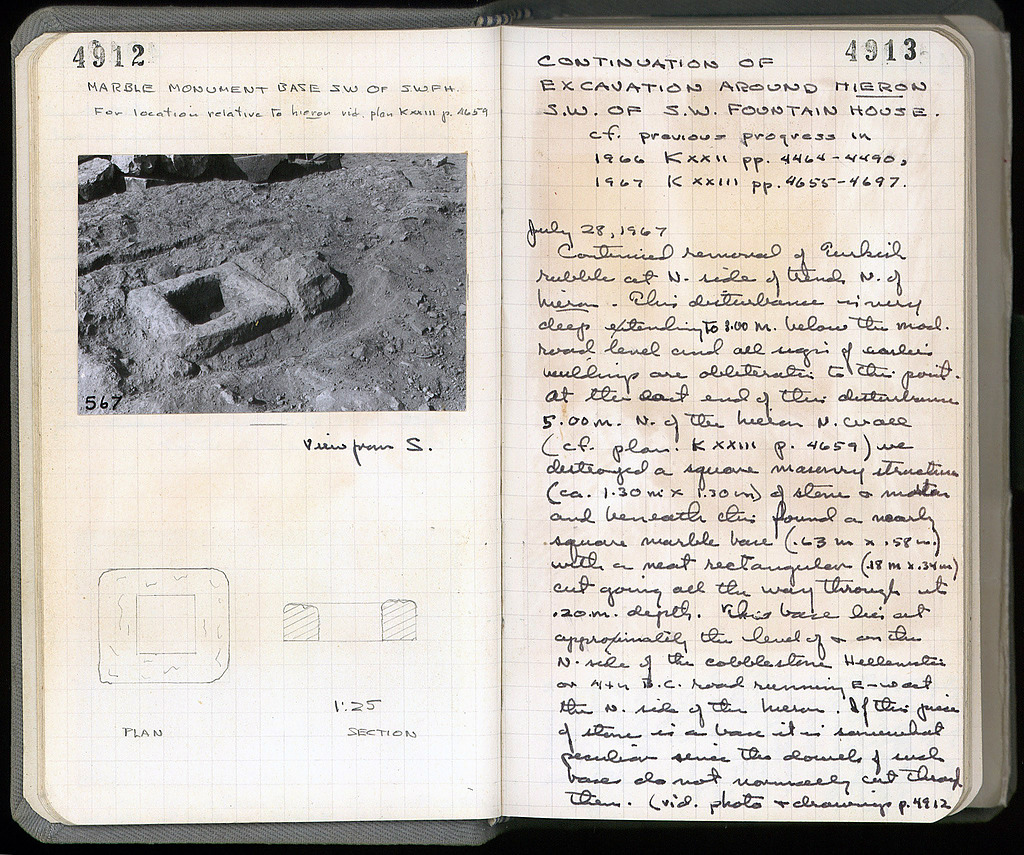 4912
MARBLE MONUMENT BASE SW OF SWFH.
For location relative to hieron vid. plan KXXIII p. 4659
567
View from S.
1:25
PLAN
SECTION
4913
CONTINUATION OF
EXCAVATION AROUND HIERON
S.W. OF S.W. FOUNTAIN HOUSE.
cf. previous progress in
1966 KXXII pp. 4464-4490,
1967 KXXIII pp. 4655-4697.
July 28, 1967
Continued removal of Turkish
rubble at N. side of trench N. of
hieron. This disturbance is very
deep extending to 1.00 m. below the mod.
road level and all signs of earlier
buildings are obliterated to this point.
At the east end of this disturbance
5.00 m. N. of the hieron N. wall
(cf. plan. KXXIII p. 4659) we
destroyed a square masonry structure
(ca. 1.30 m x 1.30 m) of stone & mortar
and beneath this found a nearly
square marble base (.63 m x .58 m.)
with a neat rectangular (.18 m x .34 m)
cut going all the way through its
.20 m. depth. This base lies at
approximately the level of & on the
N. side of the cobblestone Hellenistic
or 4th B.C. road running E-W at
the N. side of the hieron. If this piece
of stone is a base it is somewhat
peculiar since the dowels of such
bases do not normally cut through
them. (vid. photo & drawings p. 4912